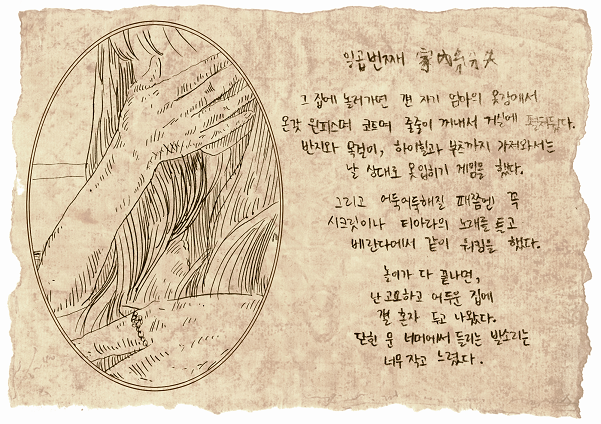 일곱번째 家內 分失
그 집에 놀러가면 걘 자기 엄마의 옷장에서
온갖 원피스며 코트며 줄줄이 꺼내서 거실에 펼쳐뒀다.
반지와 목걸이, 하이힐과 부츠까지 가져와서는
날 상대로 옷입히기 게임을 했다.
그리고 어둑어둑해질 때쯤엔 꼭
시크릿이나 티아라의 노래를 틀고
베란다에서 같이 워킹을 했다.
놀이가 다 끝나면,
난 고요하고 어두운 집에
걜 혼자 두고 나왔다.
닫힌 문 너머에서 들리는 발소리는
너무 작고 느렸다.